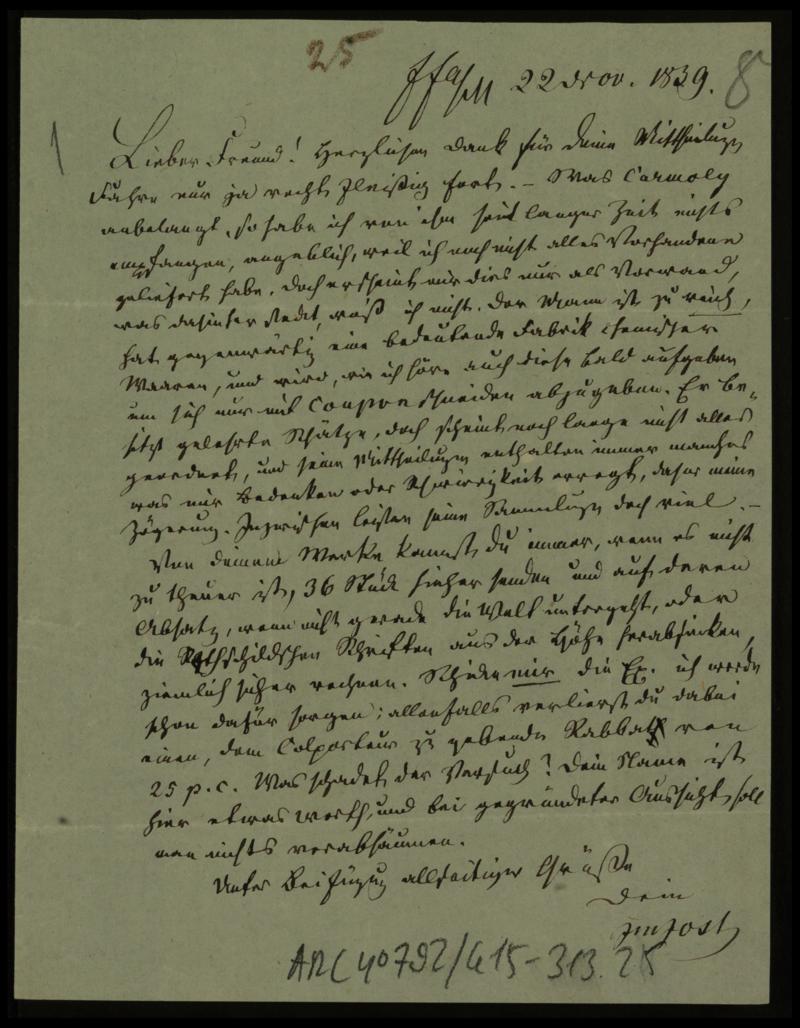 25
Ffa/M 22 Nov. 1839.
8
1
Lieber Freund! Herzlichen Dank für deine Mittheilungen
Fahre nur ja recht fleißig fort. – Was Carmoly
anbelangt, so habe ich von ihm seit langer Zeit nichts
empfangen, angeblich, weil ich noch nicht alles Vorhandene
geliefert habe. Doch erscheint mir dies nur als Vorwand,
was dahinter steckt, weiß ich nicht. Der Mann ist zu reich,
hat gegenwärtig eine bedeutende Fabrik chemischer
Waaren, und wird, wie ich höre auch diese bald aufgeben
um sich nur mit Couponschneiden abzugeben. Er be-
sitzt gelehrte Schätze, doch scheint noch lange nicht alles
geordnet, und seine Mittheilungen enthalten immer manches
was mir Bedenken oder Schwierigkeit erregt, daher meine
Zögerung. Inzwischen leisten seine Sammlungen doch viel. –
Von deinem Werke kannst du immer, wenn es nicht
zu theuer ist, 36 Stück hieher senden und auf deren
Absatz, wenn nicht gerade die Welt untergeht, oder
die Rothschildschen Schriften aus der Höhe herabsinken,
ziemlich sicher rechnen. Schicke mir die Ex. ich werde
schon dafür sorgen; allenfalls verlierst du dabei
einen, dem Colporteur zu gebenden Rabbat von
25 p. c. Was schadet der Versuch? Dein Name ist
hier etwas werth, und bei gegründeter Aussicht soll
man nichts verabsäumen.
Unter Beifügung allseitiger Grüße
Dein
JMJost
ARC 4o 792/G15-313.25